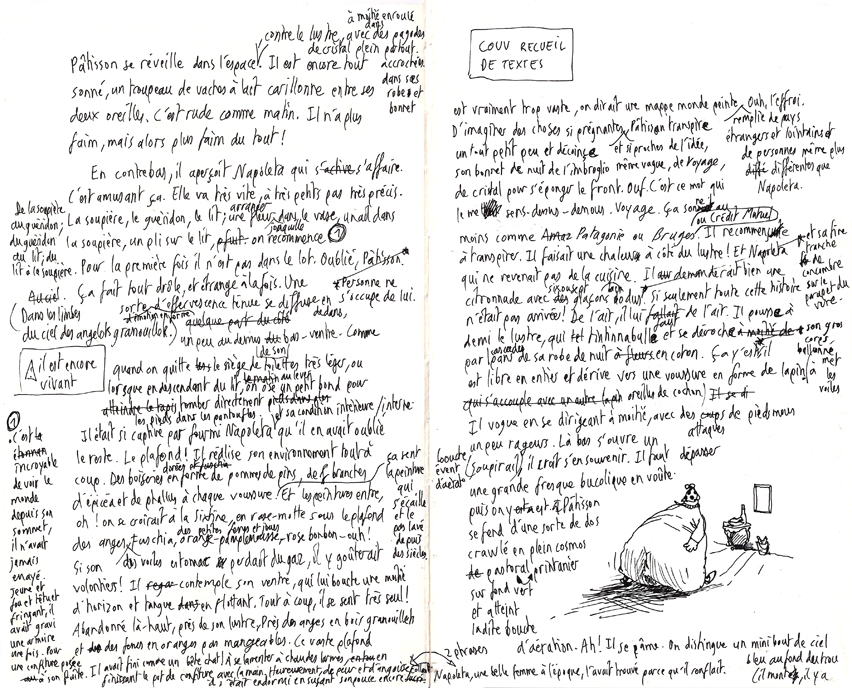 à moitié enroulé
dans
contre le lustre, avec des pagodes
de cristal plein partout.
accrochées
dans ses
robe et
bonnet
Pâtisson se réveille dans l'espace. Il est encore tout
sonné, un troupeau de vaches à lait carillonne entre ses
deux oreilles. C'est rude comme matin. Il n'a plus
faim, mais alors plus faim du tout !
En contrebas, il aperçoit Napoleta qui s'active s'affaire.
C'est amusant ça. Elle va très vite, à très petits pas très précis.
De la soupière
au guéridon,
du guéridon
au lit, du
lit à la soupière.
arranger
La soupière, le guéridon, le lit ; une fleur dans le vase, un nad dans
jaquille
la soupière, un pli sur le lit, on recommence ①
Pour la première fois il n'est pas dans le lot. Oublié, Pâtisson.
Personne ne
s'occupe de lui.
Au ciel. Ça fait tout drôle, et étrange à la fois. Une
(Dans les limbes
du ciel des angelots granouillok.)
sorte d'effervescence ténue se diffuse en
dedans,
quelque part du côté
un peu au dessus du bas-ventre. Comme
il est encore
vivant
quand on quitte le siège de toilettes très léger, ou
de son
lorsque en descendant du lit, on ose un petit bond pour
le matin au lever
atteindre le tapis tomber directement pieds dans
les pieds dans les pantoufles.
et sa condition intérieure / interne
①
C'est
étonnant
incroyable
de voir le
monde
depuis son
sommet,
il n'avait
jamais
essayé.
Jeune et
fou et têtu et
fringant, il
avait gravi
une armoire
une fois. Pour
une confiture posée
à son faîte.
Il était si captivé par fourmi Napoleta qu'il en avait oublié
le reste. Le plafond ! Il réalise son environnement tout à
dorées et fuschia
coup. Des boiseries en forme de pommes de pins, de branches
d'épicéa et de phallus à chaque voussure ! Et les peintures entre,
ça sent
la peinture
qui
s'écaille
et le
pas lavé
depuis
des siècles.
oh ! on se croirait à la Sixtine, en rase-motte sous le plafond
des anges fuschia, orange-pamplemousse, rose bonbon - ouh !
Si son estomac perdait du gaz, il y goûterait
volontiers ! Il contemple son ventre, qui lui bouche une moitié
d'horizon et tangue en flottant. Tout à coup, il se sent très seul !
Abandonné là-haut, près de son lustre, Près des anges en bois granouilleh
et des fones en oranges pas mangeables. Ce vaste plafond
Il avait fini comme un bête chat à se lamenter à chaudes larmes,
finissant le pot de confiture avec la main. Heureusement, de peur et d'angoisse
il s'était endormi en suçant son pouce encore
COUV RECUEIL
DE TEXTES
est vraiment trop vaste, on dirait une mappe monde peinte. Ouh, l'effroi.
remplie de pays
étrangers et lointains et
de personnes même plus
différentes que
Napoleta.
D'imaginer des choses si prégnantes, Pâtisson transpire
et si proches de l'idée,
un tout petit peu et décoince
son bonnet de nuit de l'imbroglio même vague, de voyage,
de cristal pour s'éponger le front. Ouf. C'est ce mot qui
le met sens-dessus-dessous. Voyage. Ça sonne
ou Crédit Mutuel
moins comme Patagonie ou Bruges. Il recommence
à transpirer. Il faisait une chaleur à côté du lustre ! Et Napoleta
et sa fine
tranche
de
concombre
sur le
parapet du
verre.
qui ne revenait pas de la cuisine. Il demanderait bien une
citronnade avec des glaçons dodus. si seulement toute cette histoire
n'était pas arrivée ! De l'air, il lui faut de l'air. Il pousse à
demi le lustre, qui tintinnabule et se décroche à moitié de son gros
corps,
met
les
voiles
cascades
par pans de sa robe de nuit à fleurs en coton. Ça y est il
est libre en entier et dérive vers une voussure en forme de lapin à
qui s'accouple avec un autre lapin oreilles de cochon.
Il vogue en se dirigeant à moitié, avec des coups de pieds menus
attaques
un peu rageurs. Là bas s'ouvre un
bouche
évent
d'aération
(soupirail), il irait s'en souvenir. Il faut dépasser
une grande fresque bucolique en voûte.
puis on y est. Pâtisson
se fend d'une sorte de dos
crawlé en plein cosmos
pastoral printanier
sur fond vert
et atteint
ladite bouche
2 phrases
d'aération. Ah ! Il se pâme. On distingue un mini bout de ciel
bleu au fond des trou
Napoleta, une belle femme à l'époque, l'avait trouvé parce qu'il ronflait.
(il monte, il y a